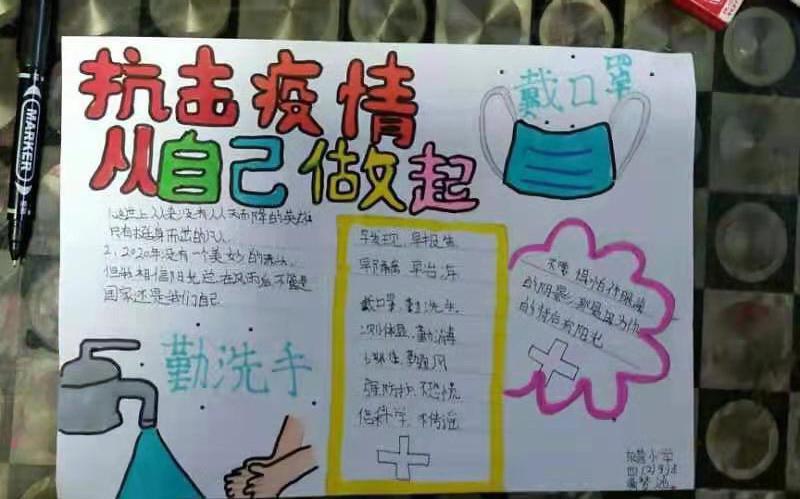 MARKER
抗击疫情
从自己做起
戴口罩
1、这世上从来没有从天而降的英雄
只有挺身而出的凡人
2、2020年没有一个美妙的
但我相信阳光总在风雨后不管是
国家还是我们自己
早发现,早报告
早隔离,早治疗
戴口罩,勤洗手
测体温,勤消毒
勤通风
强防护,不恐慌
信科学,不传谣
不要惧怕你眼前
的阴影,那是因为你
的背后有阳光
勤洗手
小学
四(2)
梦